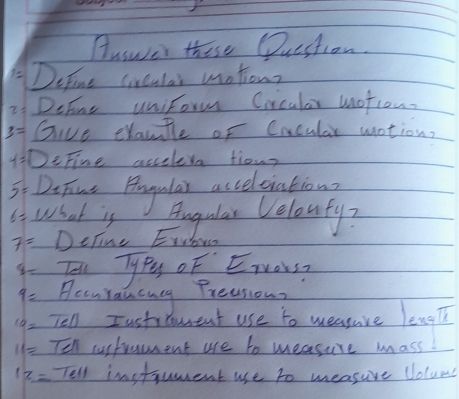 Answer these Question.
1= Define circular motion?
2= Define uniform Circular motion?
3= Give example of Circular motion?
4= Define acceleration?
5= Define Angular acceleration?
6= What is Angular Velocity?
7= Define Errors?
8= Tell Types of Errors?
9= Precision?
10= Tell Instrument use to measure length
11= Tell instrument use to measure mass?
12= Tell instrument use to measure Volume